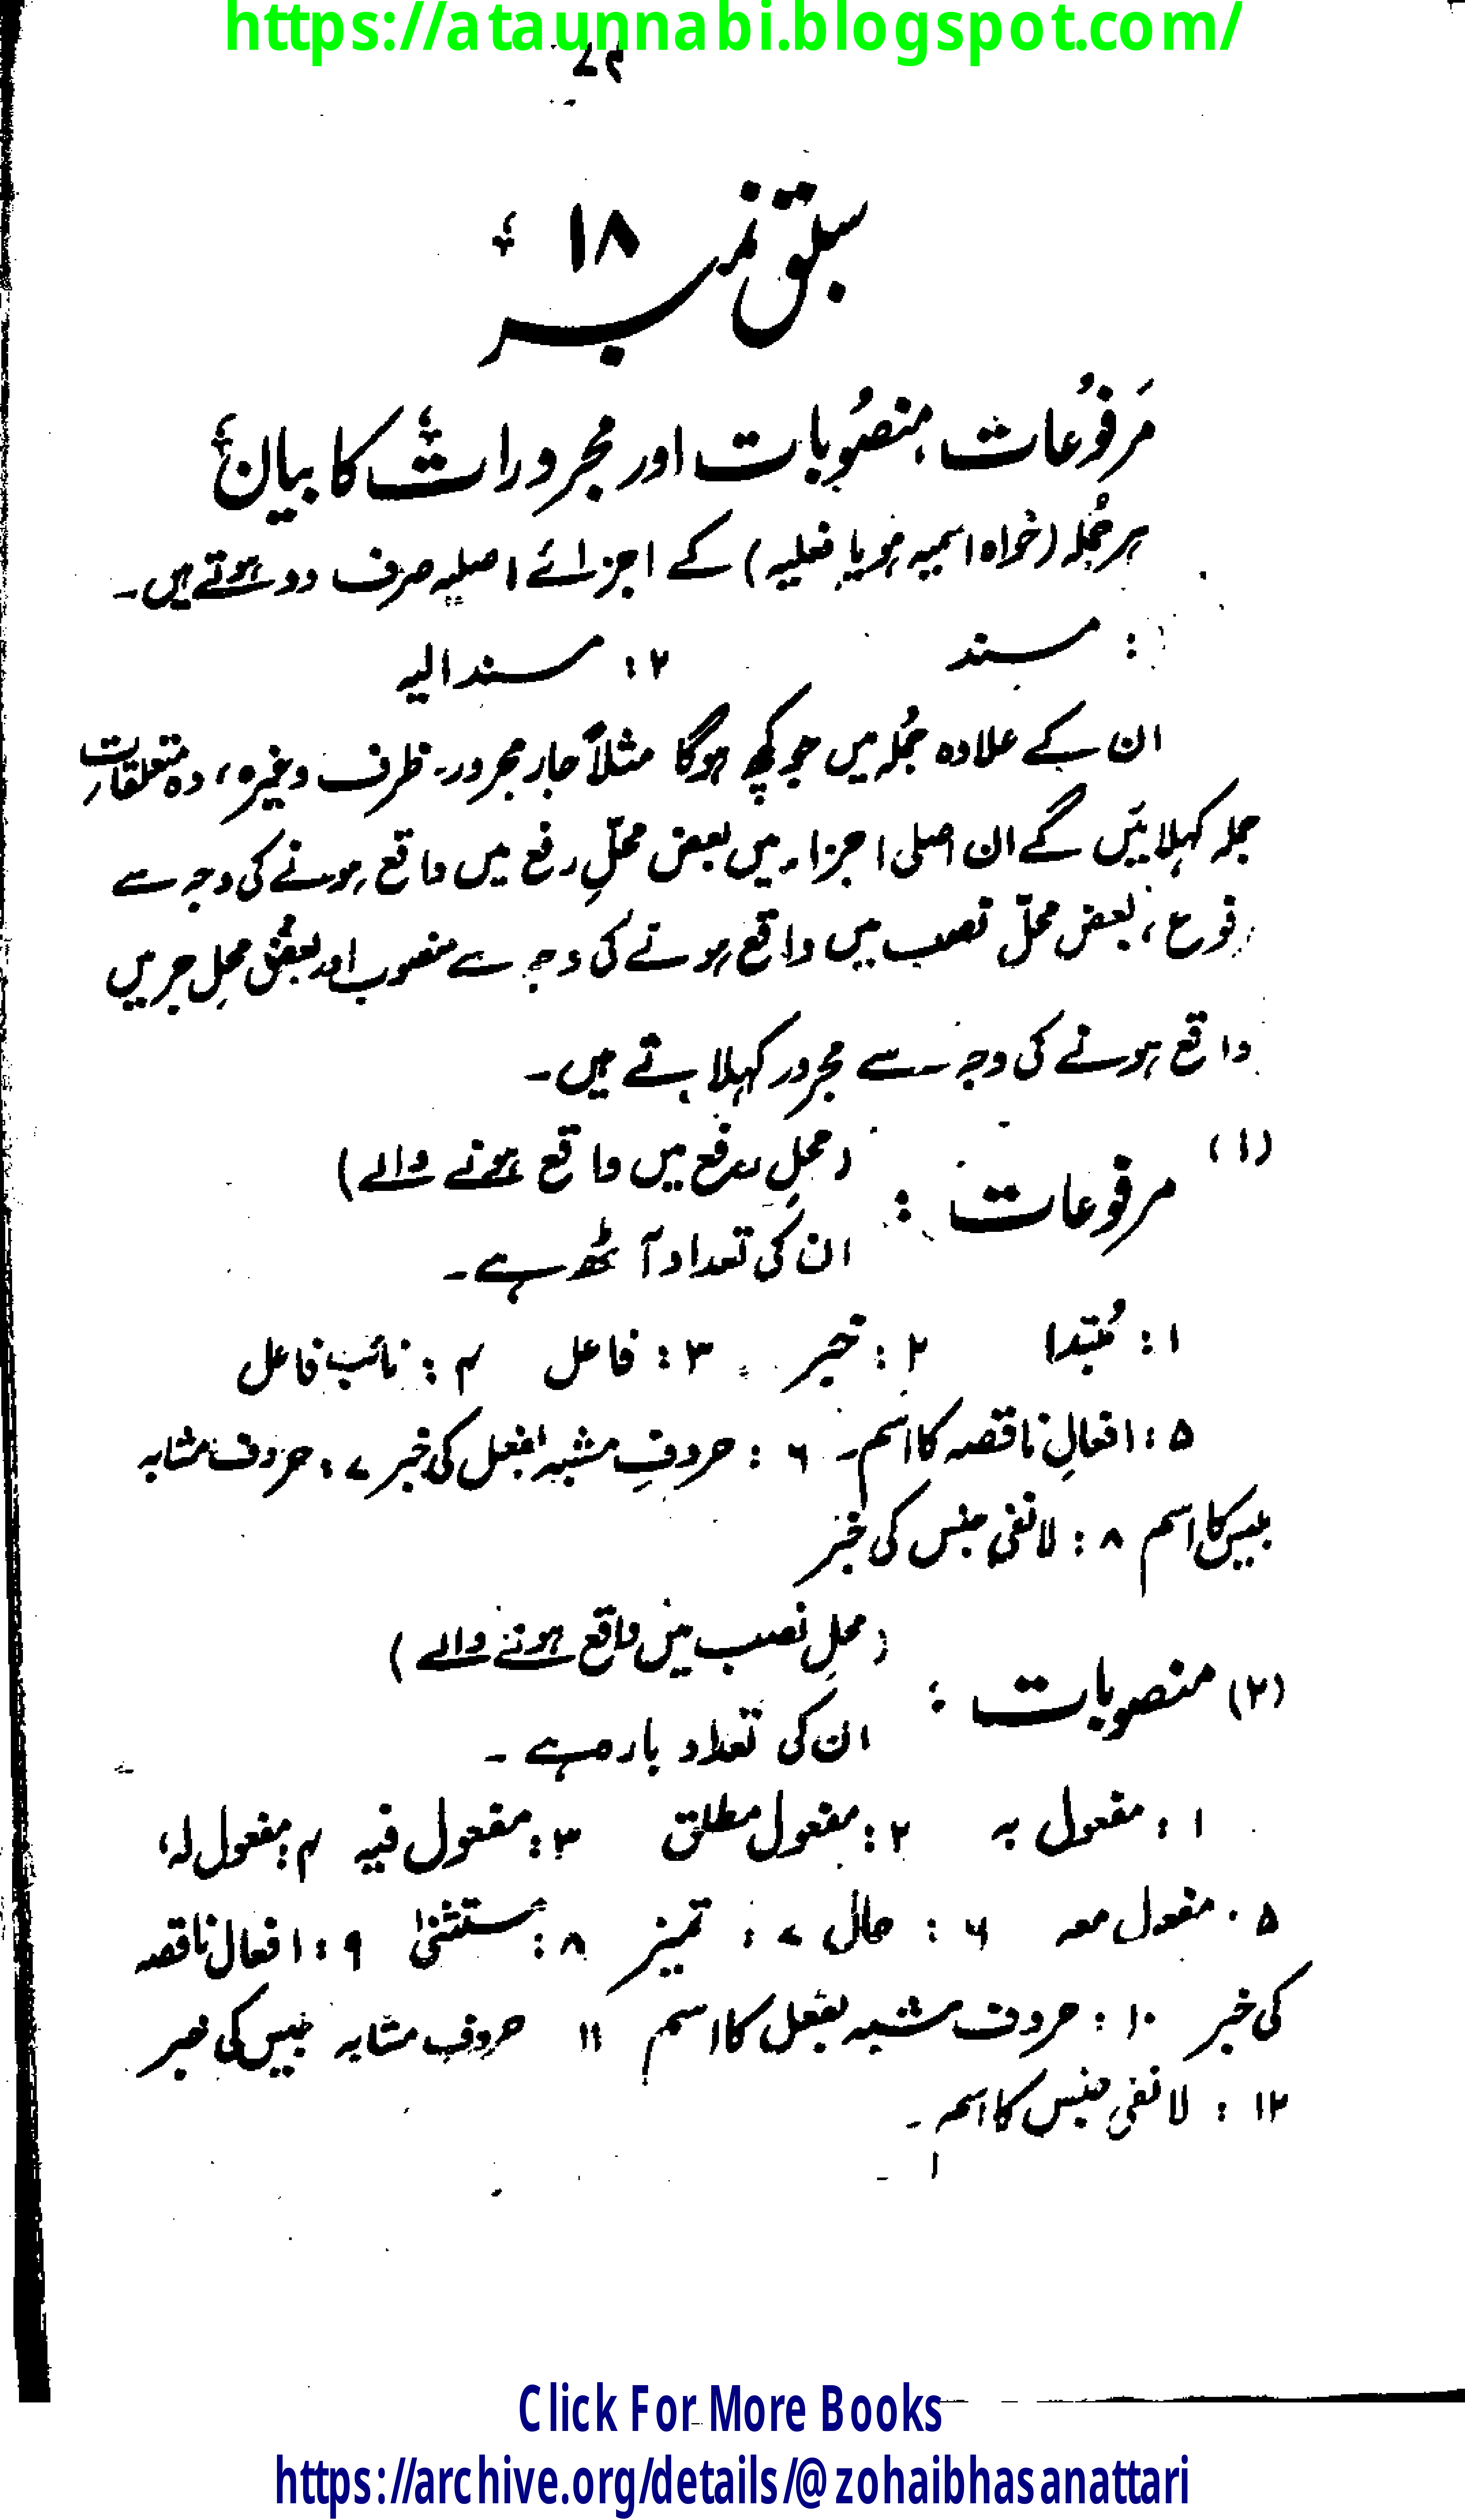 https://ataunnabi.blogspot.com/
سبق نمبر ۱۸
مَرفُوعات، منصُوبات اور مجرورات کا بیان
ہر جُملہ (خواہ اسمیہ ہو یا فعلیہ) کے اجزائے اصلیہ صرف دو ہوتے ہیں۔
: مسند ۲: مسندالیہ
ان کے علاوہ جُملہ میں جو کچھ ہوگا مثلاً جار مجرور۔ ظرف وغیرہ، وہ متعلقات
جملہ کہلائیں گے ان اصلی اجزاء میں بعض محلِّ رفع میں واقع ہونے کی وجہ سے
مرفوع، بعض محلّ نصب میں واقع ہونے کی وجہ سے منصوب اور بعض محلِ جر میں
واقع ہونے کی وجہ سے مجرور کہلاتے ہیں۔
(۱) مرفوعات : (محلِ رفع میں واقع ہونے والے)
ان کی تعداد آٹھ ہے۔
۱: مُبتدا ۲: خبر ۳: فاعل ۴: نائب فاعل
۵: افعالِ ناقصہ کا اسم۔ ۶: حروفِ مشبہ بفعل کی خبر ۷: حروف مشابہ
بلیس کا اسم ۸: لا نفی جنس کی خبر
(۲) منصوبات : (محلِ نصب میں واقع ہونے والے)
ان کی تعداد بارہ ہے۔
۱: مفعول بہ ۲: مفعول مطلق ۳: مفعول فیہ ۴: مفعول لہ،
۵۔ مفعول معہ ۶: حال ۷: تمیز ۸: مستثنیٰ ۹: افعال ناقصہ
کی خبر ۱۰: حروف مشبہ بفعل کا اسم ۱۱ حروفِ مشابہ بلیس کی خبر
۱۲: لا نفی جنس کا اسم۔
Click For More Books
https://archive.org/details/@zohaibhasanattari